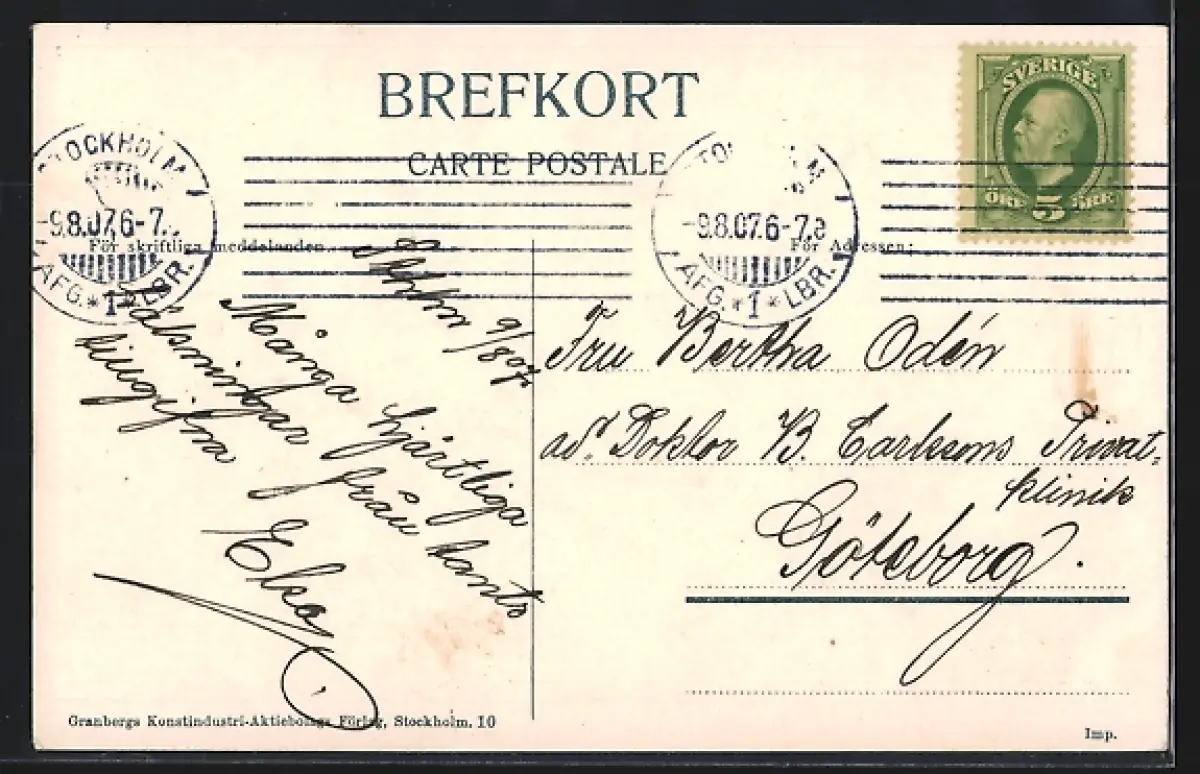 BREFKORT
CARTE POSTALE
SVERIGE
ÖRE 5 ÖRE
STOCKHOLM
-9.8.07.6-7.
AFG. * 1 * LBR.
-9.8.07.6-7.
AFG. * 1 * LBR.
För skriftliga meddelanden.
För Adressen:
Sthlm 9/8 07.
Många hjärtliga
hälsningar från
Elsa
Fru Bertha Odén
ad. Doktor B. Carlssons Privat-
klinik
Göteborg.
Granbergs Konstindustri-Aktiebolags Förlag, Stockholm. 10
Imp.